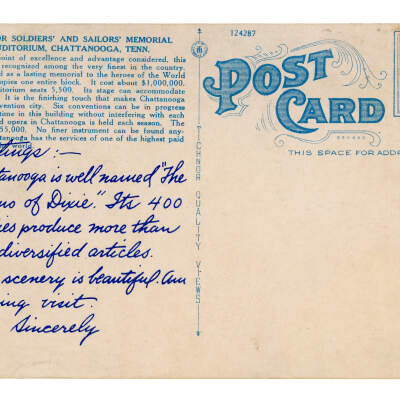 OR SOLDIERS' AND SAILORS' MEMORIAL
UDITORIUM, CHATTANOOGA, TENN.
point of excellence and advantage considered, this
recognized among the very finest in the country.
d as a lasting memorial to the heroes of the World
mpies one entire block. It cost about $1,000,000.
itorium seats 5,500. Its stage can accommodate
It is the finishing touch that makes Chattanooga
vention city. Six conventions can be in progress
time in this building without interfering with each
d opera in Chattanooga is held each season. The
55,000. No finer instrument can be found any-
tanooga has the services of one of the highest paid
world.
tings:-
tanooga is well named "The
mo of Dixie." Its 400
ies produce more than
diversified articles.
scenery is beautiful. Am
ing visit.
Sincerely
TICHNOR QUALITY VIEWS
124287
POST
CARD
THIS SPACE FOR ADDR